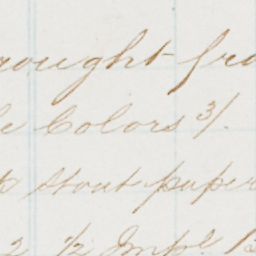 rought fro
le Colors 3/.
stout paper
2 1/2 Impl. B